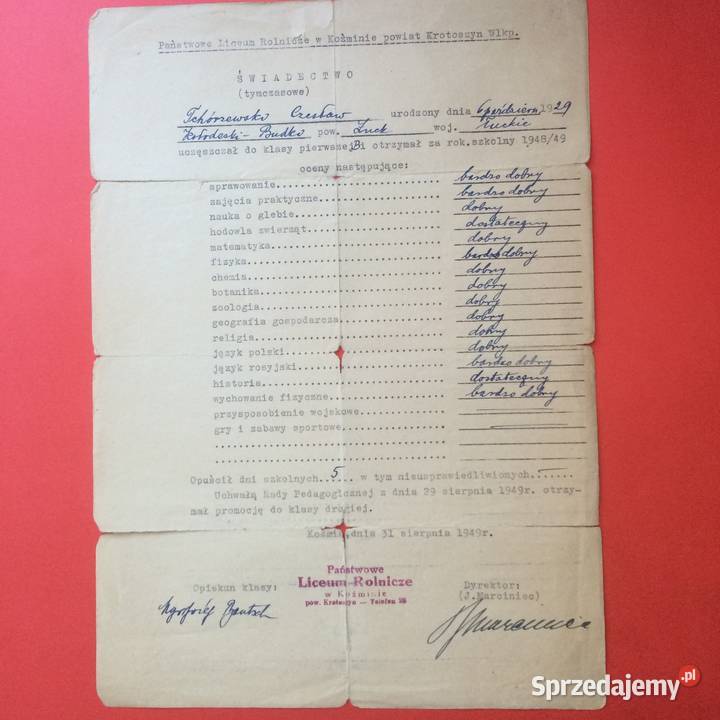 Państwowe Liceum Rolnicze w Koźminie powiat Krotoszyn Wlkp.
ŚWIADECTWO
(tymczasowe)
Tchórzewski Czesław urodzony dnia 6 październ. 1929
Kołodeski-Budka pow. Łuck woj. Łuckie
uczęszczał do klasy pierwszej B i otrzymał za rok.szkolny 1948/49
oceny następujące:
sprawowanie bardzo dobry
zajęcia praktyczne bardzo dobry
nauka o glebie dobry
hodowla zwierząt dostateczny
matematyka dobry
fizyka bardzo dobry
chemia dobry
botanika dobry
zoologia dobry
geografia gospodarcza dobry
religia dobry
język polski dobry
język rosyjski bardzo dobry
historia dostateczny
wychowanie fizyczne bardzo dobry
przysposobienie wojskowe
gry i zabawy sportowe
Opuścił dni szkolnych 5 w tym nieusprawiedliwionych -
Uchwałą Rady Pedagogicznej z dnia 29 sierpnia 1949r. otrzy-
mał promocję do klasy drugiej.
Koźmin,dnia 31 sierpnia 1949r.
Państwowe
Liceum-Rolnicze
w Koźminie
pow. Krotoszyn — Telefon 28
Opiekun klasy:
Dyrektor:
(J.Marciniec)
Sprzedajemy.pl